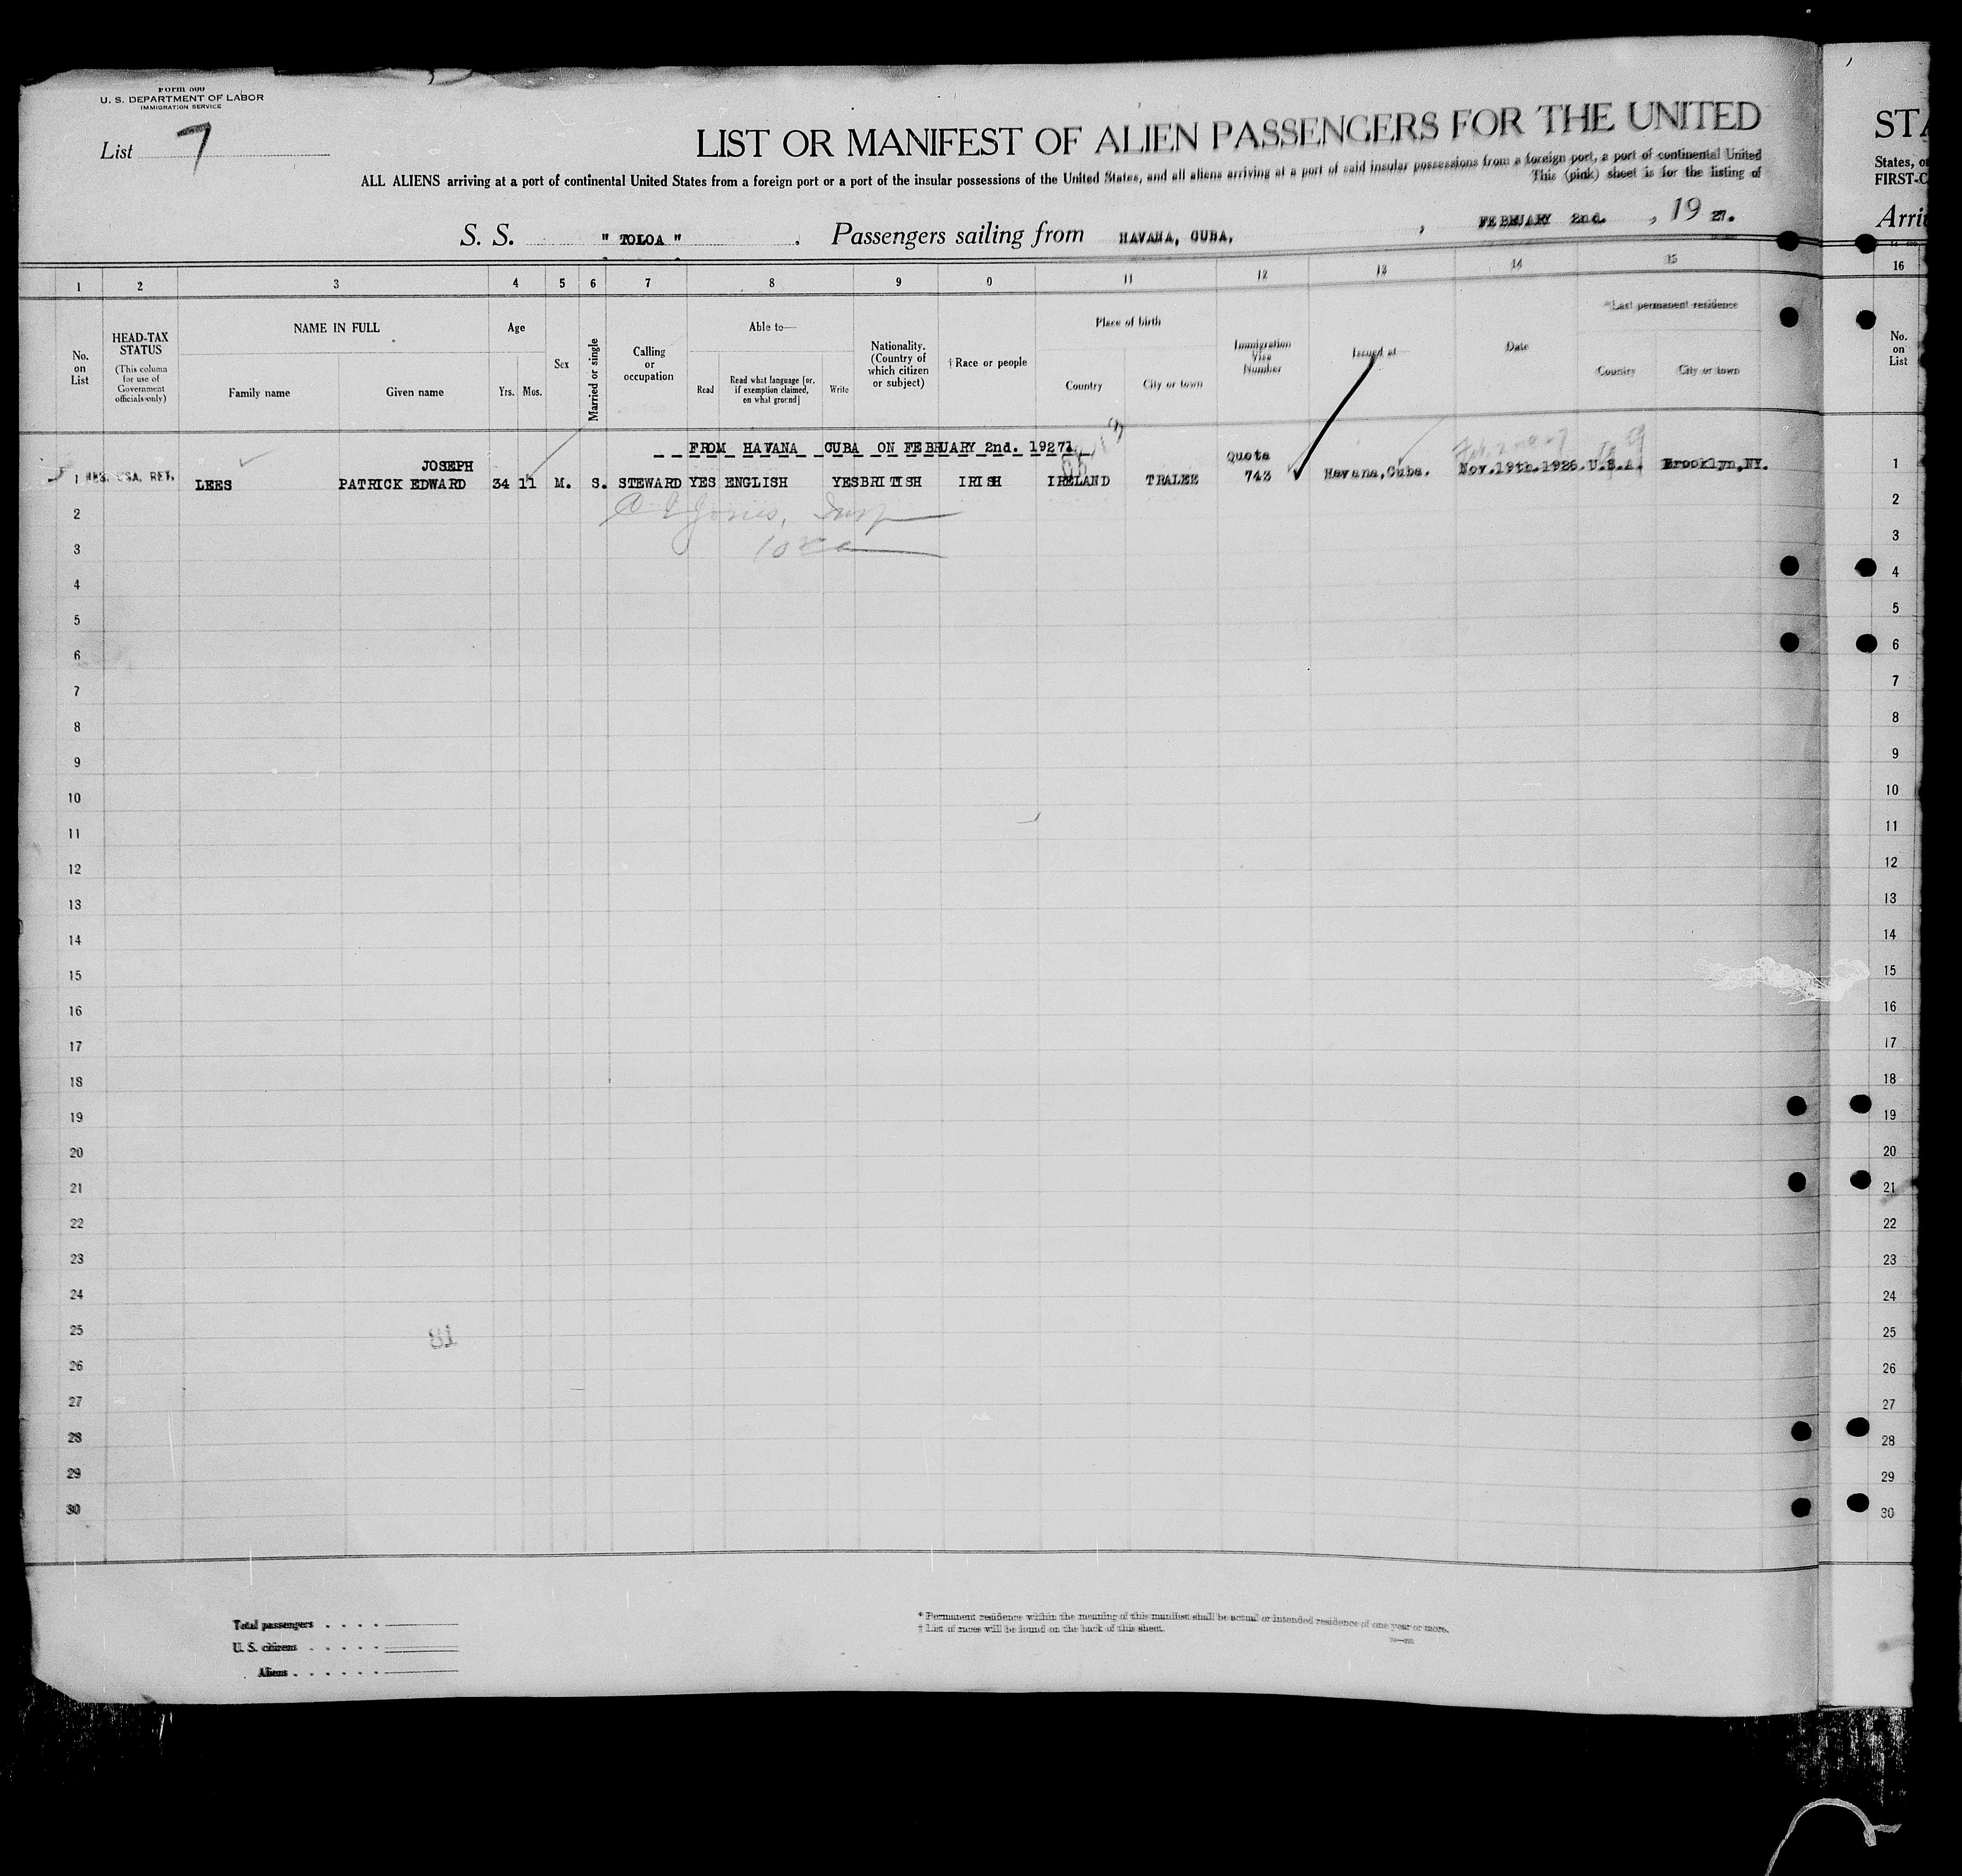 Form 500
U. S. DEPARTMENT OF LABOR
IMMIGRATION SERVICE
List 7
LIST OR MANIFEST OF ALIEN PASSENGERS FOR THE UNITED
ALL ALIENS arriving at a port of continental United States from a foreign port or a port of the insular possessions of the United States, and all aliens arriving at a port of said insular possessions from a foreign port, a port of continental United
This (pink) sheet is for the listing of
S. S. " TOLOA " . Passengers sailing from HAVANA, CUBA, , FEBRUARY 2nd. , 19 27.
1 2 3 4 5 6 7 8 9 0 11 12 13 14 15
No. on List
HEAD-TAX STATUS
(This column for use of Government officials only)
NAME IN FULL
Family name Given name
Age
Yrs. Mos.
Sex
Married or single
Calling or occupation
Able to—
Read Read what language [or, if exemption claimed, on what ground] Write
Nationality. (Country of which citizen or subject)
† Race or people
Place of birth
Country City or town
Immigration Visa Number
Issued at—
Date
*Last permanent residence
Country City or town
FROM HAVANA CUBA ON FEBRUARY 2nd. 1927
JOSEPH Quota
1 USA. RET. LEES PATRICK EDWARD 34 11 M. S. STEWARD YES ENGLISH YES BRITISH IRISH IRELAND TRALEE 743 Havana, Cuba. Nov. 19th. 1926. U.S.A. Brooklyn, NY.
2 Jones, Insp
3
4
5
6
7
8
9
10
11
12
13
14
15
16
17
18
19
20
21
22
23
24
25
26
27
28
29
30
81
Total passengers . . . .
U. S. citizens . . . . .
Aliens . . . . . .
* Permanent residence within the meaning of this manifest shall be actual or intended residence of one year or more.
† List of races will be found on the back of this sheet.
STA
States, o
FIRST-C
Arri
16
No. on List
1
2
3
4
5
6
7
8
9
10
11
12
13
14
15
16
17
18
19
20
21
22
23
24
25
26
27
28
29
30